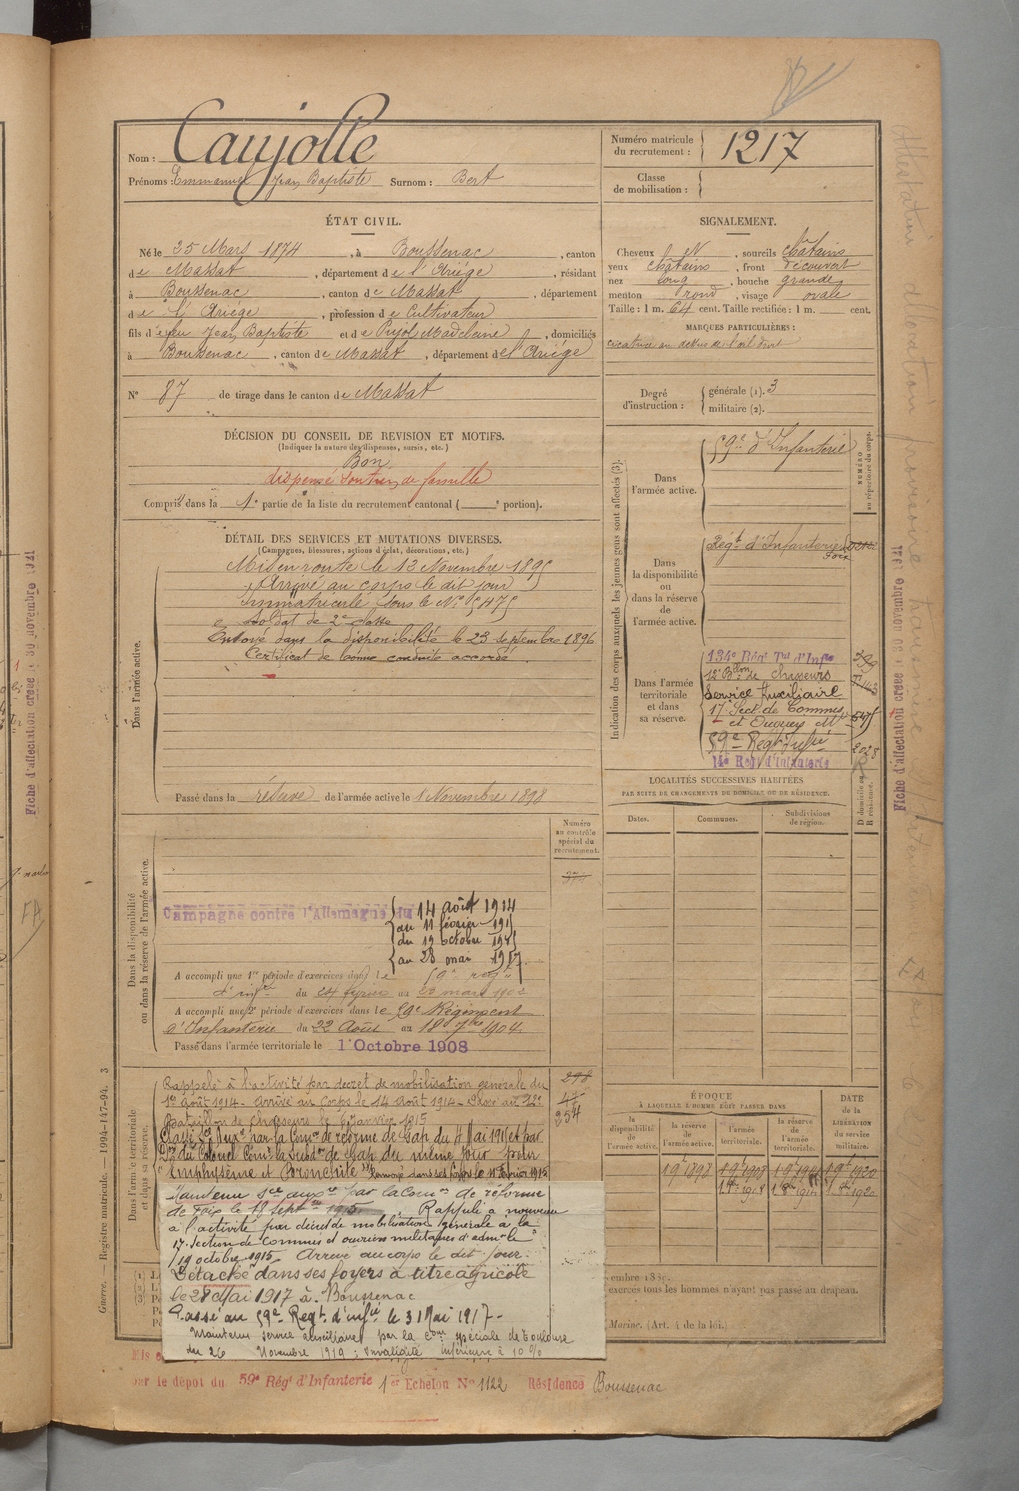 Nom : Caujolle
Prénoms : Emmanuel Jean Baptiste Surnom : Bert
Numéro matricule du recrutement : 1217
Classe de mobilisation :
ÉTAT CIVIL.
Né le 25 Mars 1874, à Boussenac, canton
de Massat, département de l'Ariége, résidant
à Boussenac, canton de Massat, département
de l'Ariége, profession de Cultivateur
fils d'e feu Jean Baptiste et de Pujol Madeleine, domiciliés
à Boussenac, canton de Massat, département de l'Ariége
SIGNALEMENT.
Cheveux N, sourcils châtains
yeux châtains, front découvert
nez long, bouche grande
menton rond, visage ovale
Taille : 1 m. 64 cent. Taille rectifiée : 1 m. cent.
MARQUES PARTICULIÈRES :
cicatrice au dessus de l'œil droit
N° 87 de tirage dans le canton de Massat
Degré d'instruction : générale (1). 3
militaire (2).
DÉCISION DU CONSEIL DE REVISION ET MOTIFS.
(Indiquer la nature des dispenses, sursis, etc.)
Bon
dispensé soutien de famille
Compris dans la 1e partie de la liste du recrutement cantonal ( e portion).
DÉTAIL DES SERVICES ET MUTATIONS DIVERSES.
(Campagnes, blessures, actions d'éclat, décorations, etc.)
Dans l'armée active.
Mis en route le 13 Novembre 1895
Arrivé au corps le dit jour
immatriculé sous le N° 5475
Soldat de 2e classe
Envoyé dans la disponibilité le 23 septembre 1896
Certificat de bonne conduite accordé
Passé dans la réserve de l'armée active le 1 Novembre 1898
Indication des corps auxquels les jeunes gens sont affectés (3).
NUMÉRO au répertoire du corps.
Dans l'armée active.
59e d'Infanterie
Dans la disponibilité ou dans la réserve de l'armée active.
Régt d'Infanterie
Foix
Dans l'armée territoriale et dans sa réserve.
134e Régt Tal d'Infie
12e Bon de chasseurs
Service Auxiliaire
17e Sect. de Commis
et Ouvriers Mre
59e Regt Infie
14e Regt d'Infanterie
2028
LOCALITÉS SUCCESSIVES HABITÉES
PAR SUITE DE CHANGEMENTS DE DOMICILE OU DE RÉSIDENCE.
Dates. Communes. Subdivisions de région. D domicile ou R résidence.
Numéro au contrôle spécial du recrutement.
Dans la disponibilité ou dans la réserve de l'armée active.
Campagne contre l'Allemagne du 14 août 1914
au 11 février 1915
du 19 octobre 1915
au 28 mai 1917.
A accompli une 1re période d'exercices dans le 59e régt
d'infie du 24 février au 23 mars 1902
A accompli une 2e période d'exercices dans le 59e Régiment
d'Infanterie du 22 Août au 18 7bre 1904.
Passé dans l'armée territoriale le 1 Octobre 1908
Dans l'armée territoriale et dans sa réserve.
Rappelé à l'activité par décret de mobilisation générale du
1er août 1914 - Arrivé au Corps le 14 Août 1914 - Passé au 12e
Bataillon de chasseurs le 6 Janvier 1915
Classé Sce Auxre par la Comon de réforme de Gap du 4 Mai 1915 et par
Don du Colonel Comt la Subdon de Gap du même jour pour
Emphysème et Bronchite Renvoyé dans ses foyers le 11 Février 1915
Maintenu sce auxre par la Comon de réforme
de Foix le 18 septbre 1915 Rappelé à nouveau
à l'activité par décret de mobilisation générale à la
17e Section de Commis et ouvriers militaires d'admon le
19 octobre 1915. Arrivé au corps le dit jour.
Détaché dans ses foyers à titre agricole
le 28 Mai 1917 à Boussenac
Passé au 59e Regt. d'infie le 31 Mai 1917 -
Maintenu service auxiliaire par la Con spéciale de Toulouse
du 26 Novembre 1919 : Invalidité inférieure à 10 %
298
254
ÉPOQUE
À LAQUELLE L'HOMME DOIT PASSER DANS
la disponibilité de l'armée active.
la réserve de l'armée active.
l'armée territoriale.
la réserve de l'armée territoriale.
DATE de la LIBÉRATION du service militaire.
embre 188
exercés tous les hommes n'ayant pas passé au drapeau.
Marine. (Art. 4 de la loi.)
Guerre. — Registre matricule. — 1994-147-94. 3
par le dépôt du 59e Régt d'Infanterie 1er Echelon N° 1122 Résidence Boussenac
Fiche d'affectation créée le 30 novembre 1921
Fiche d'affectation créée le 30 novembre 1921